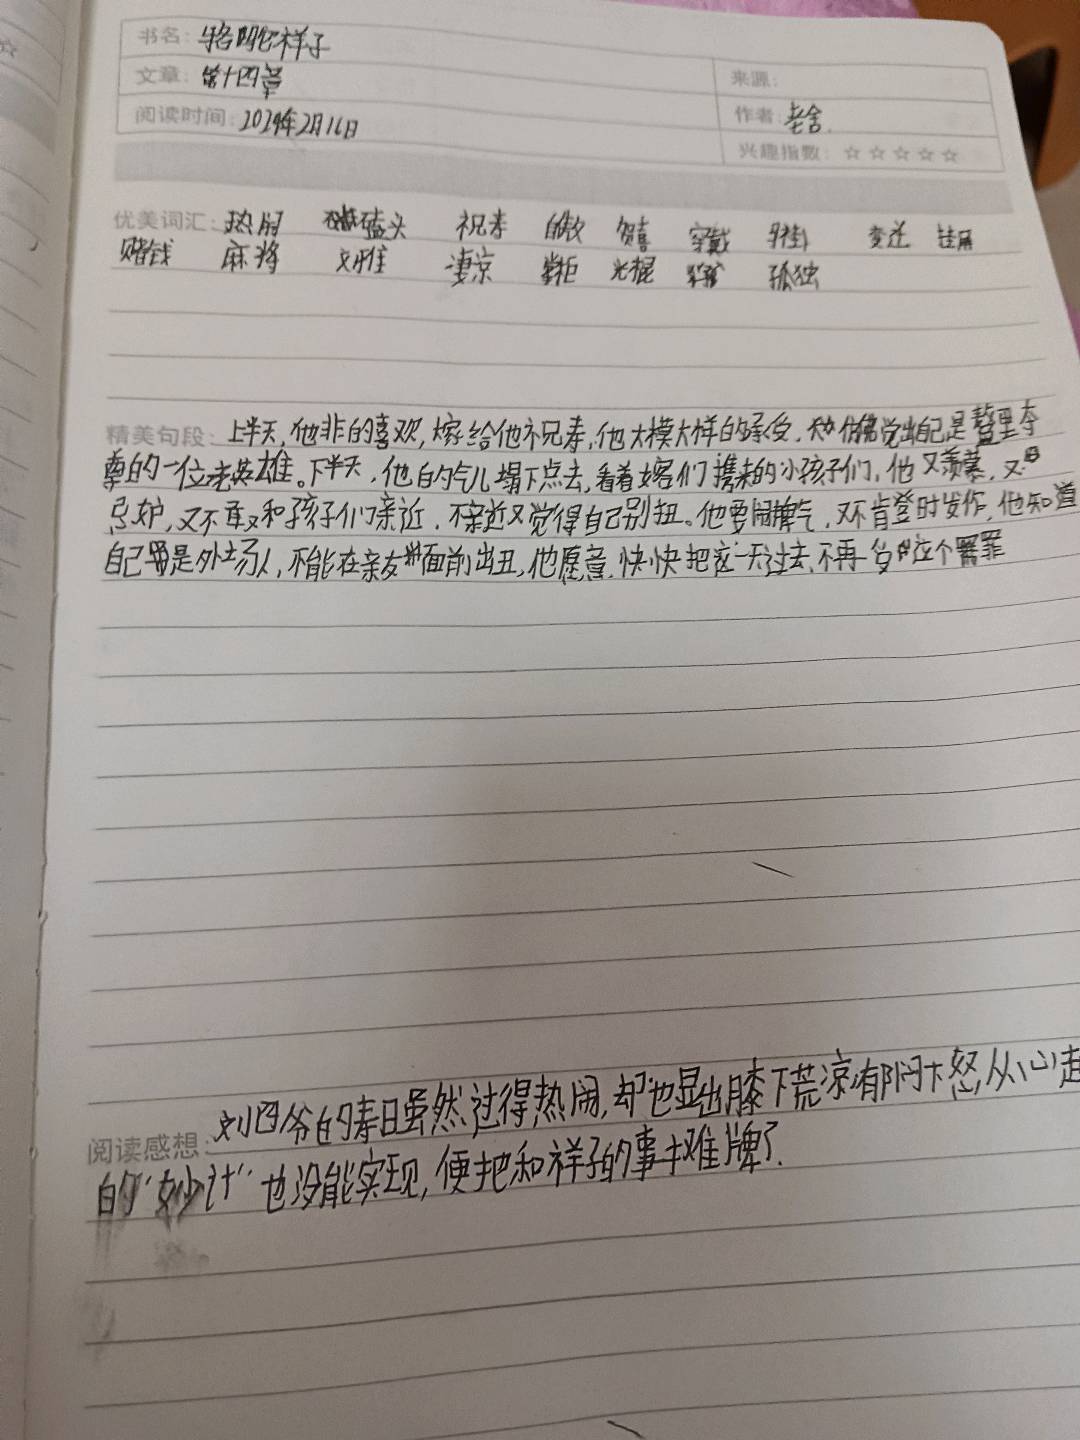 书名: 骆驼祥子
文章: 第十四章
来源:
阅读时间: 2024年2月16日
作者: 老舍.
兴趣指数: ☆☆☆☆☆
优美词汇: 热闹 磕头 祝寿 自傲 贺喜 穿戴 变迁
赌钱 麻将 文雅 凄凉 掌柜 光棍 孤独
精美句段: 上半天,他非的喜欢,嫁给他祝寿,他大模大样的承受,仿佛觉出自己是鳌里夺
尊的一位老英雄。下半天,他的气儿塌下点去,看着女客们携来的小孩子们,他又羡慕,又
忌妒,又不敢和孩子们亲近,不亲近又觉得自己别扭。他要闹脾气,又不肯登时发作,他知道
自己是外场人,不能在亲友面前出丑,他愿意快快把这一天过去,不再受这个罪
阅读感想: 刘四爷的寿日虽然过得热闹,却也显出膝下荒凉,郁闷 怒,从心起
的"妙计"也没能实现,便把和祥子的事摊牌了.